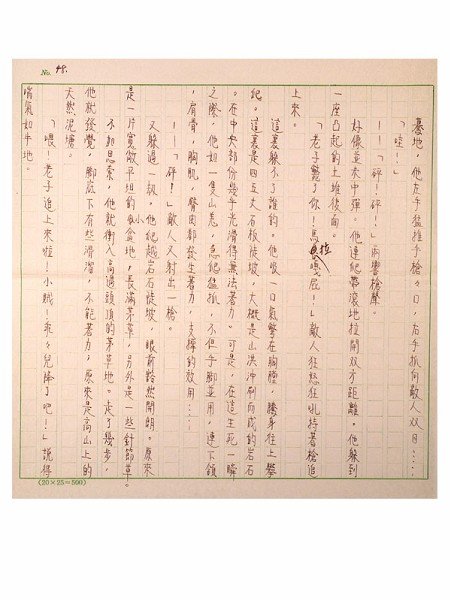 No. 48.
驀地，他左手猛推手槍々口，右手抓向敵人双目……
「哇！」
——「砰！砰！」兩響槍聲。
好像並未中彈。他連爬帶滾地拉開双方距離，他躲到
一座凸起的土堆後面。
「老子斃了你！馬拉嘎屁！」敵人狂怒狂吼持著槍追
上來。
這裏躲不了誰的。他吸一口氣繁在胸膛，騰身往上攀
起。這裏是四五丈石板陡坡，大概是山洪沖刷而成的岩石
。在中央部份幾乎光滑得無法著力。可是，在這生死一瞬
之際，他如一隻山羌，急爬猛抓，不但手腳並用，連下頷
，肩骨，胸肌，臀肉都發生著力，支撐的效用……
——「砰！」敵人又射出一槍。
又躲過一劫，他爬越岩石陡坡，眼前豁然開朗。原來
是一片寬敞平坦的小盆地，長滿茅草，另外是一些針節草。
不加思索，他就衝入高過頭頂的茅草地。走了幾步，
他就發覺，腳底下有些滑溜，不能著力，原來是高山上的
天然泥塘。
「喂！老子追上來啦！小賊！乖々兒降了吧！」說得
喘氣如牛地。
(20×25=500)